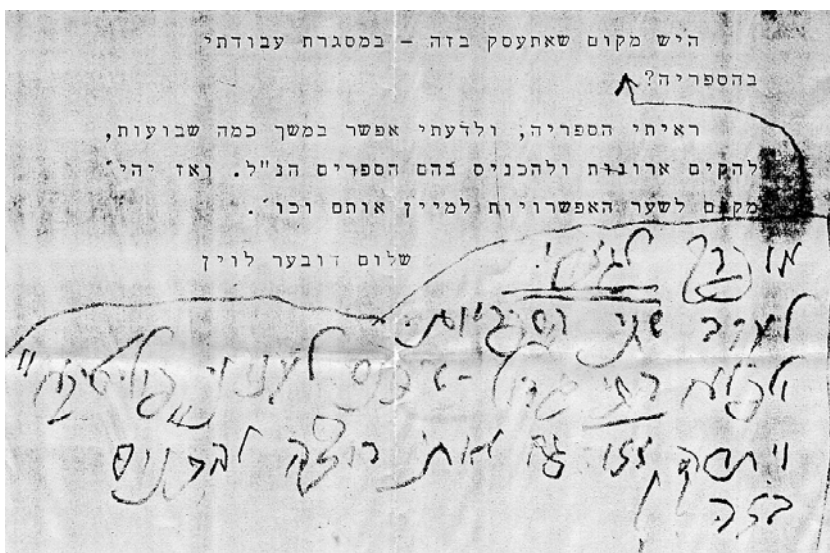 היש מקום שאתעסק בזה – במסגרת עבודתי
בהספריה?
ראיתי הספריה, ולדעתי אפשר במשך כמה שבועות,
להקים ארונות ולהכניס בהם הספרים הנ"ל. ואז יהי'
מקום לשער האפשרויות למיין אותם וכו'.
שלום דובער לוין
לגמרי.
לערב שתי הספריות.
הכי גדול – לעניני פוליטיקה"
גם אותי רוצה להכניס
בזה